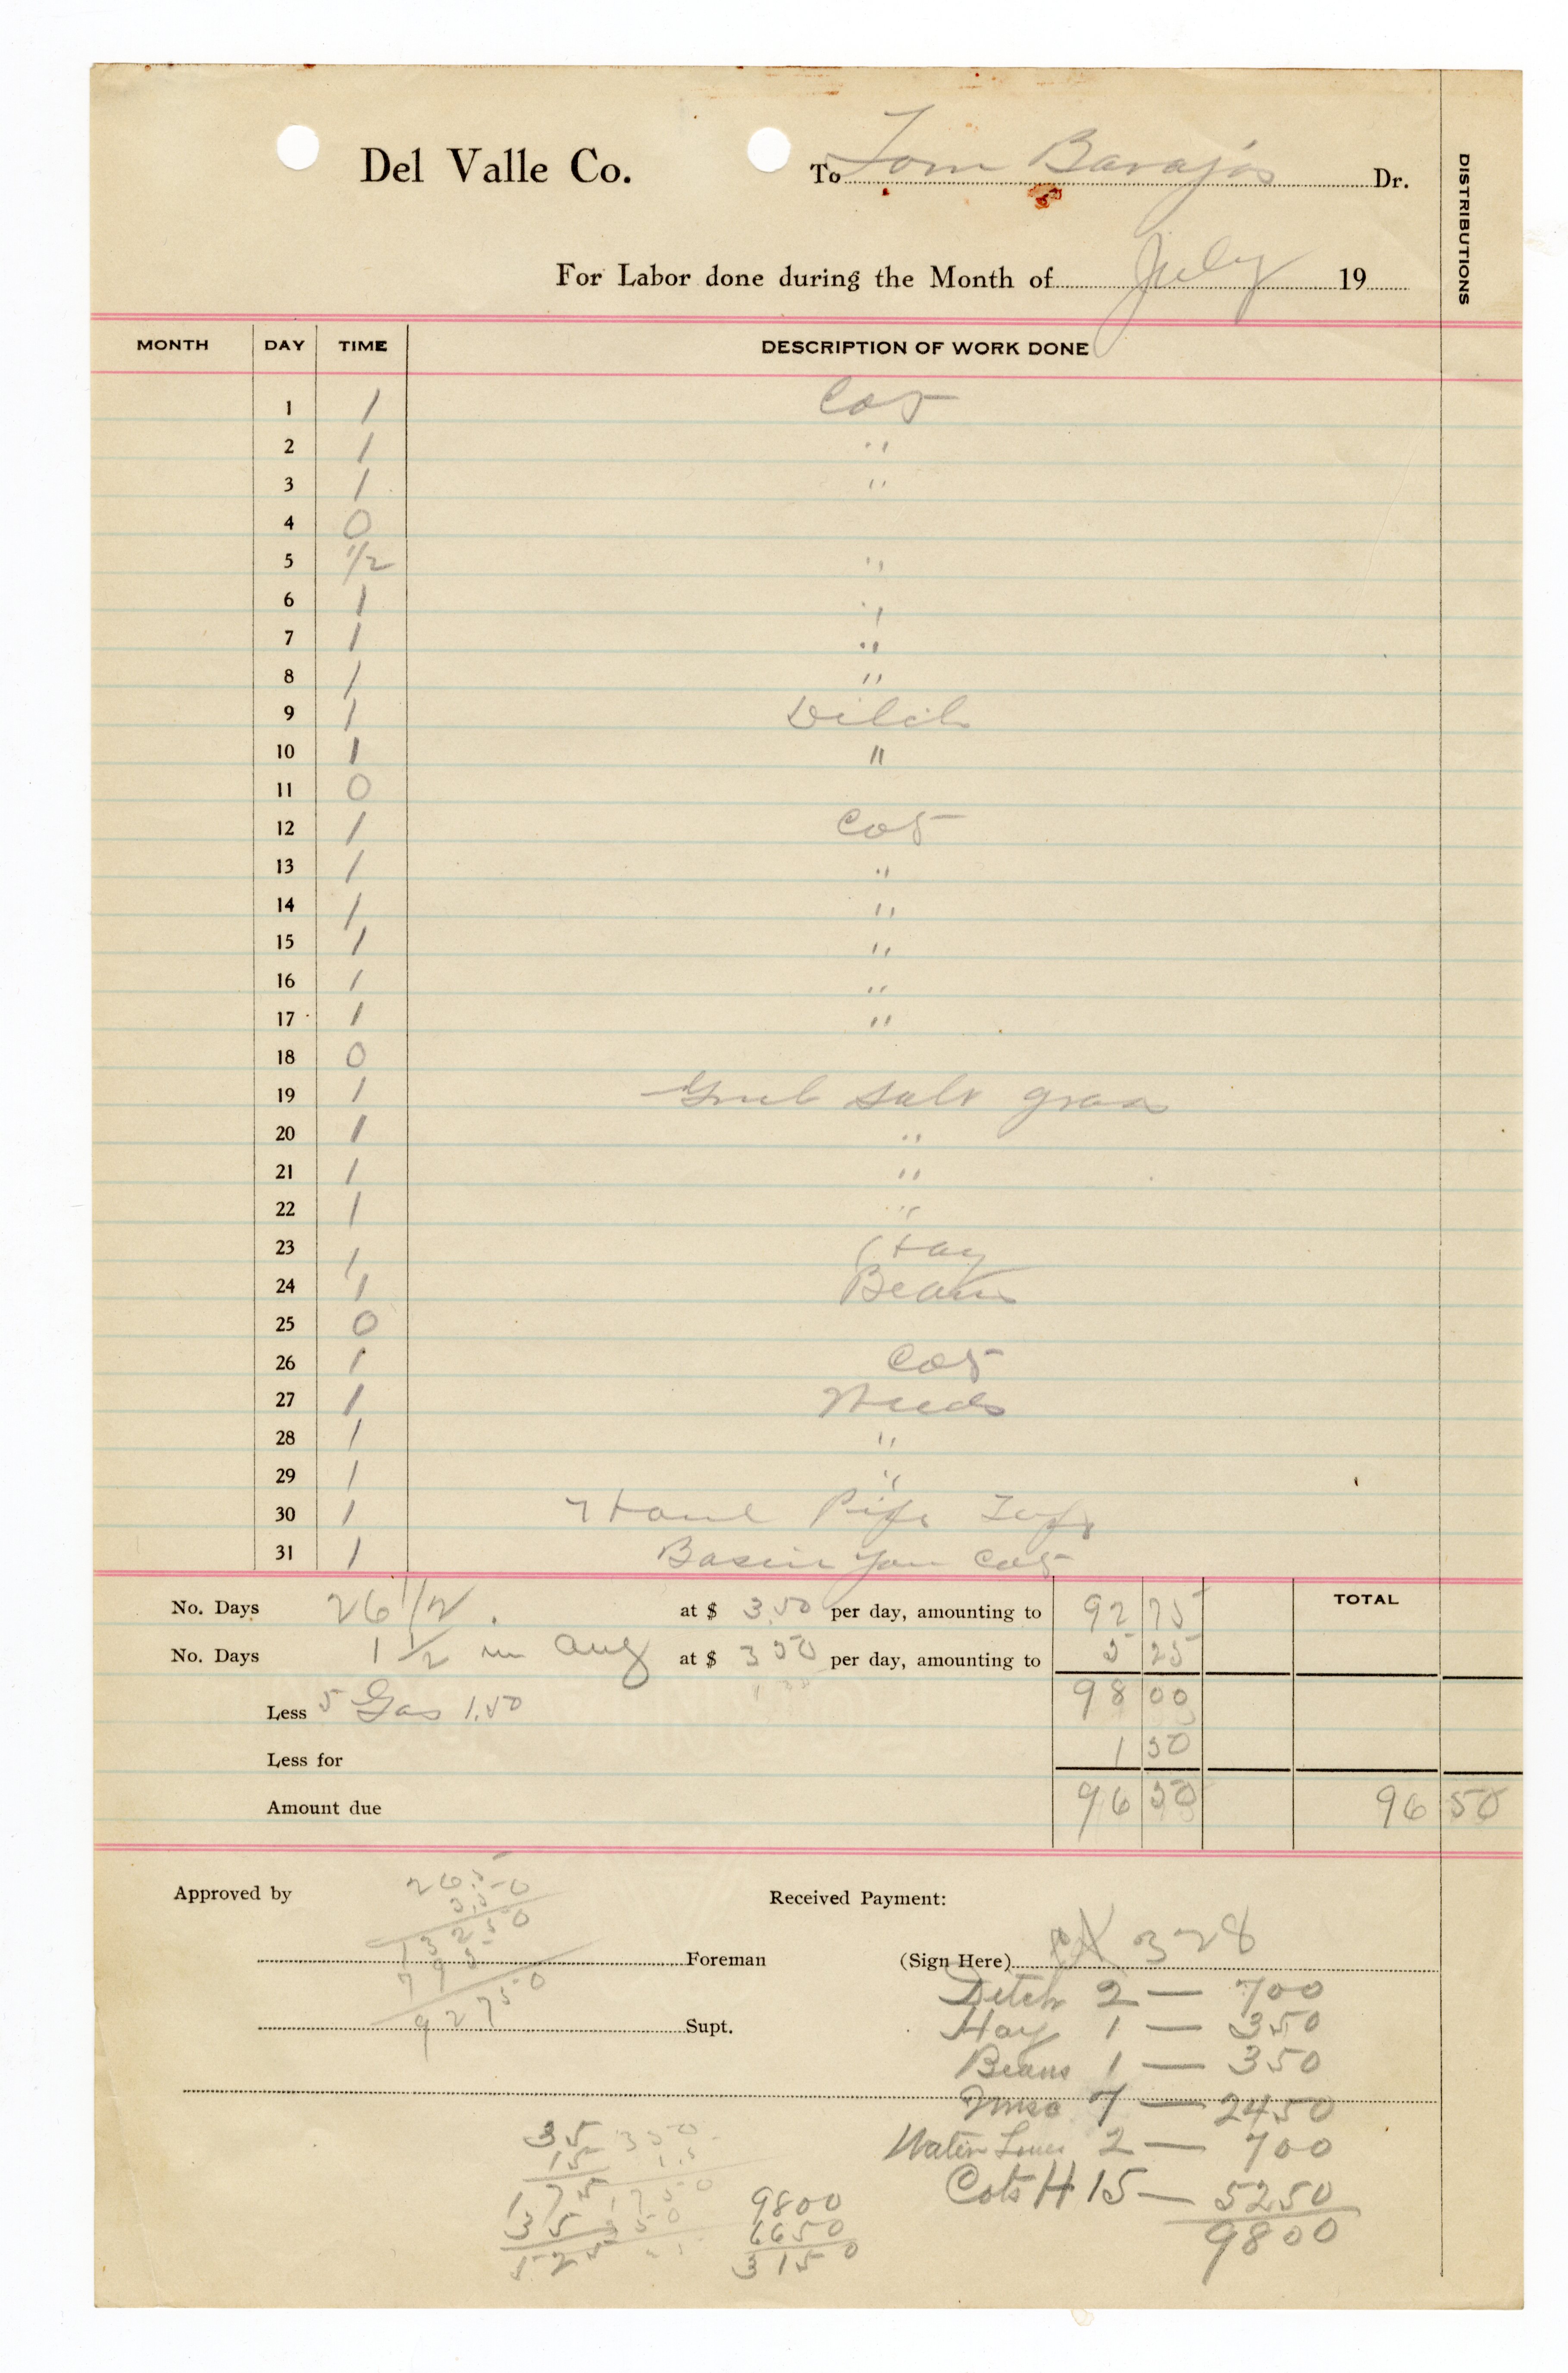 Del Valle Co. To Tom Barajas Dr.
DISTRIBUTIONS
For Labor done during the Month of July 19
MONTH DAY TIME DESCRIPTION OF WORK DONE
1 1 Cot
2 1 "
3 1 "
4 0
5 1/2 "
6 1 "
7 1 "
8 1 "
9 1 Ditch
10 1 "
11 0
12 1 Cot
13 1 "
14 1 "
15 1 "
16 1 "
17 1 "
18 0
19 1 Grub Salt grass
20 1 "
21 1 "
22 1 "
23 1 Hay
24 1 Beans
25 0
26 1 Cot
27 1 Weeds
28 1 "
29 1 "
30 1 Haul Pipe
31 1 Basin Cot
No. Days 26 1/2 at $ 3.50 per day, amounting to 92 75 TOTAL
No. Days 1 1/2 in Aug at $ 3 50 per day, amounting to 5 25
98 00
Less 5 Gas 1.50
Less for 1 50
Amount due 96 50 96 50
Approved by Received Payment:
26.50
3.5
13250
795
92750
Foreman (Sign Here) 328
Supt.
Ditch 2 — 700
Hay 1 — 350
Beans 1 — 350
Misc 7 — 2450
Water Lines 2 — 700
Cots H 15 — 5250
9800
35 350
15 1.5
175 1750
35 350
525
9800
6650
3150